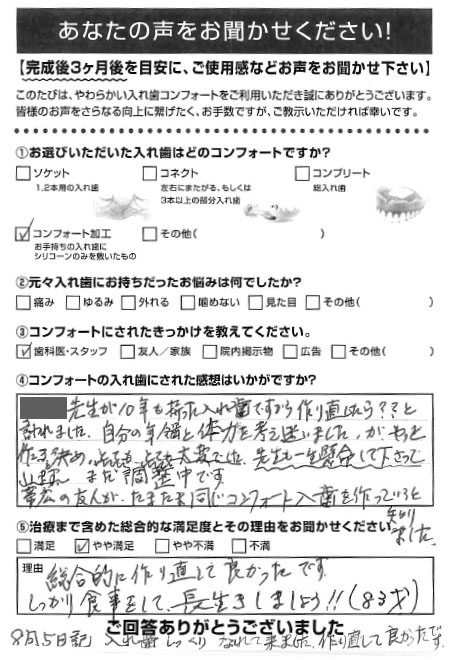 あなたの声をお聞かせください!
【完成後3ヶ月後を目安に、ご使用感などお声をお聞かせ下さい】
このたびは、やわらかい入れ歯コンフォートをご利用いただき誠にありがとうございます。
皆様のお声をさらなる向上に繋げたく、お手数ですが、ご教示いただければ幸いです。
①お選びいただいた入れ歯はどのコンフォートですか?
□ソケット □コネクト □コンプリート
1,2本用の入れ歯 左右にまたがる、もしくは 総入れ歯
3本以上の部分入れ歯
☑コンフォート加工 □その他( )
お手持ちの入れ歯に
シリコーンのみを敷いたもの
②元々入れ歯にお持ちだったお悩みは何でしたか?
□痛み □ゆるみ □外れる □噛めない □見た目 □その他( )
③コンフォートにされたきっかけを教えてください。
☑歯科医・スタッフ □友人/家族 □院内掲示物 □広告 □その他( )
④コンフォートの入れ歯にされた感想はいかがですか?
先生が10年も持った入れ歯ですから作り直したら??と
言われました、自分の年令と体力を考え迷いました、が、やっと
作る決め、とても、とても大変でした、先生も一生懸命して下さって
まだ調整中です
帯広の友人が、たまたま同じコンフォート入歯を作っていると
知り
ました。
⑤治療まで含めた総合的な満足度とその理由をお聞かせください
□満足 ☑やや満足 □やや不満 □不満
理由 総合的に作り直して良かったです。
しっかり食事をして、長生きしましょう!!(83才)
ご回答ありがとうございました
8月5日記 入れ歯しっくり なれて来ました、作り直して良かったです。